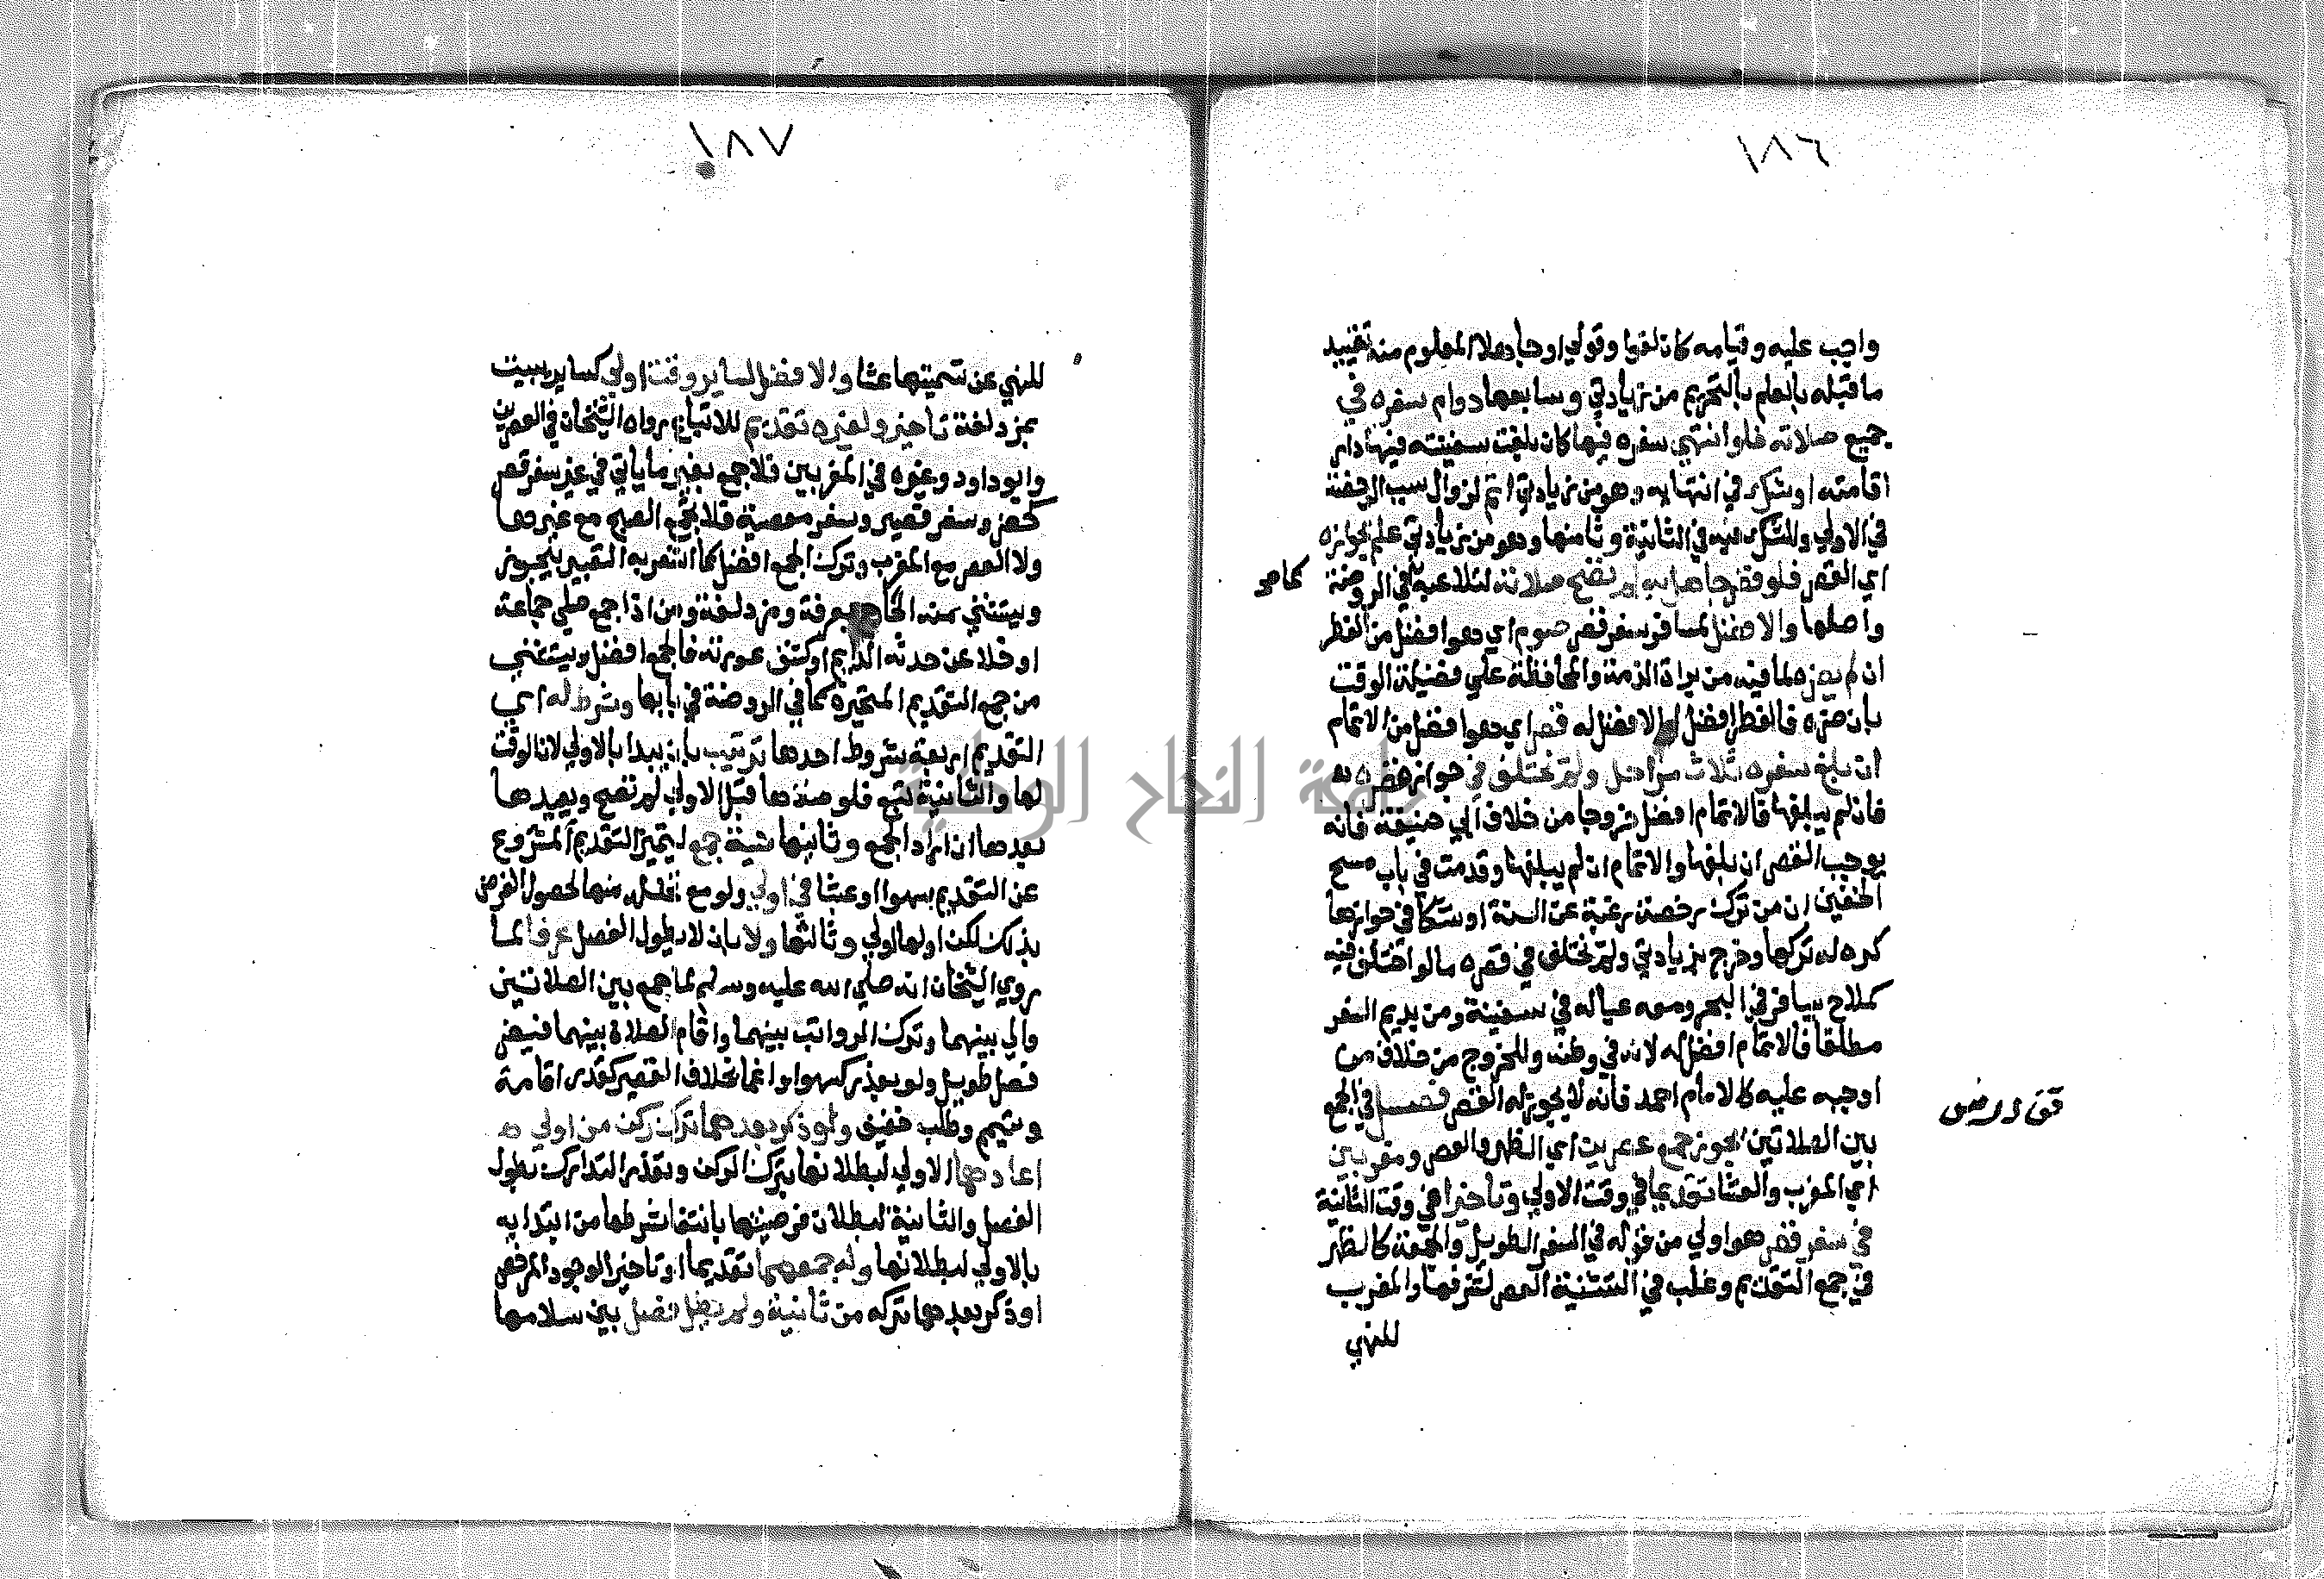 ١٨٦
واجب عليه وقيامه كان لغوا وقولي او جاهلا المعلوم منه تقييد
ما قبله بالعلم بالتحريم من زيادتي وسابعها دوام سفره في
جميع صلاته فلو انتهى سفره فيها كان بلغت سفينته فيها دار
اقامته او شك في انتهايه وهو من زيادتي اتم لزوال سبب الرخصة
في الاولي وللشك فيه في الثانية وثامنها وهو من زيادتي علم بجوازه
اي القصر فلو قصر جاهل به لم تصح صلاته لتلاعبه كما في الروضة
واصلها والافضل لمسافر سفر قصر صوم اي هو افضل من الفطر
ان لم يضره لما فيه من براة الذمة والمحافظة علي فضيلة الوقت
بان ضره فالفطر افضل والافضل له قصر اي هو افضل من الاتمام
ان بلغ سفره ثلاث مراحل ولم يختلف في جواز قصره
فان لم يبلغها فالاتمام افضل خروجا من خلاف ابي حنيفة فانه
يوجب القصر ان بلغها والاتمام ان لم يبلغها وقدمت في باب مسح
الخفين ان من ترك رخصة رغبة عن السنة او شكا في جوازها
كره له تركها وخرج بزيادتي ولم يختلف في قصره ما لو اختلف فيه
كملاح يسافر في البحر ومعه عياله في سفينة ومن يديم السفر
مطلقا فالاتمام افضل له لانه في وطنه وللخروج من خلاف من
اوجبه عليه كالامام احمد فانه لا يجوز له القصر فصل في الجمع
بين الصلاتين يجوز جمع عصرين اي الظهر والعصر ومغربين
اي المغرب والعشا تقديما في وقت الاولي وتاخيرا في وقت الثانية
في سفر قصر هو اولي من قوله في السفر الطويل والجمعة كالظهر
في جمع التقديم وغلب في التثنية العصر لشرفها والمغرب
للنهي
١٨٧
للنهي عن تسميتها عشا والافضل لساير وقت اولي كساير يبيت
بمزدلفة تاخير ولغيره تقديم للاتباع رواه الشيخان في العصرين
وابو داود وغيره في المغربين فلا جمع بغير ما ياتي في غير سفر قصر
كحضر وسفر قصير وسفر معصية فلا يجمع الصبح مع غيرها
ولا العصر مع المغرب وترك الجمع افضل كما اشعر به التعبير بيجوز
ويستثني منه الحاج بعرفة ومزدلفة ومن اذا جمع صلي جماعة
او خلا عن حدثه الدايم او كشف عورته فالجمع افضل ويستثني
من جمع التقديم المتحيرة كما في الروضة في بابها وشرط له اي
التقديم اربعة شروط احدها ترتيب بان يبدا بالاولي لان الوقت
لها والثانية تبع فلو صلاها قبل الاولي لم تصح ويعيدها
بعدها ان اراد الجمع وثانيها نية جمع ليتميز التقديم المشروع
عن التقديم سهوا او عبثا في اولي ولو مع تحلل منها لحصول الغرض
بذلك لكن اولها اولي وثالثها ولا بان لا يطول الفصل عرفا لما
روي الشيخان انه صلي الله عليه وسلم لما جمع بين الصلاتين
والي بينهما وترك الرواتب بينهما واقام الصلاة بينهما فيضر
فصل طويل ولو بعذر كسهو او اغما بخلاف القصير كقدر اقامة
وتيمم وطلب خفيف ولو ذكر بعدهما ترك ركن من اولي
اعادهما الاولي لبطلانها بترك الركن وتعذر التدارك بطول
الفصل والثانية لبطلان فرضيتها بانتفا شرطها من ابتدايه
بالاولي لبطلانها وله جمعهما تقديما او تاخيرا لوجود المرخص
او ذكر بعدهما تركه من ثانية ولم يطل فصل بين سلامها